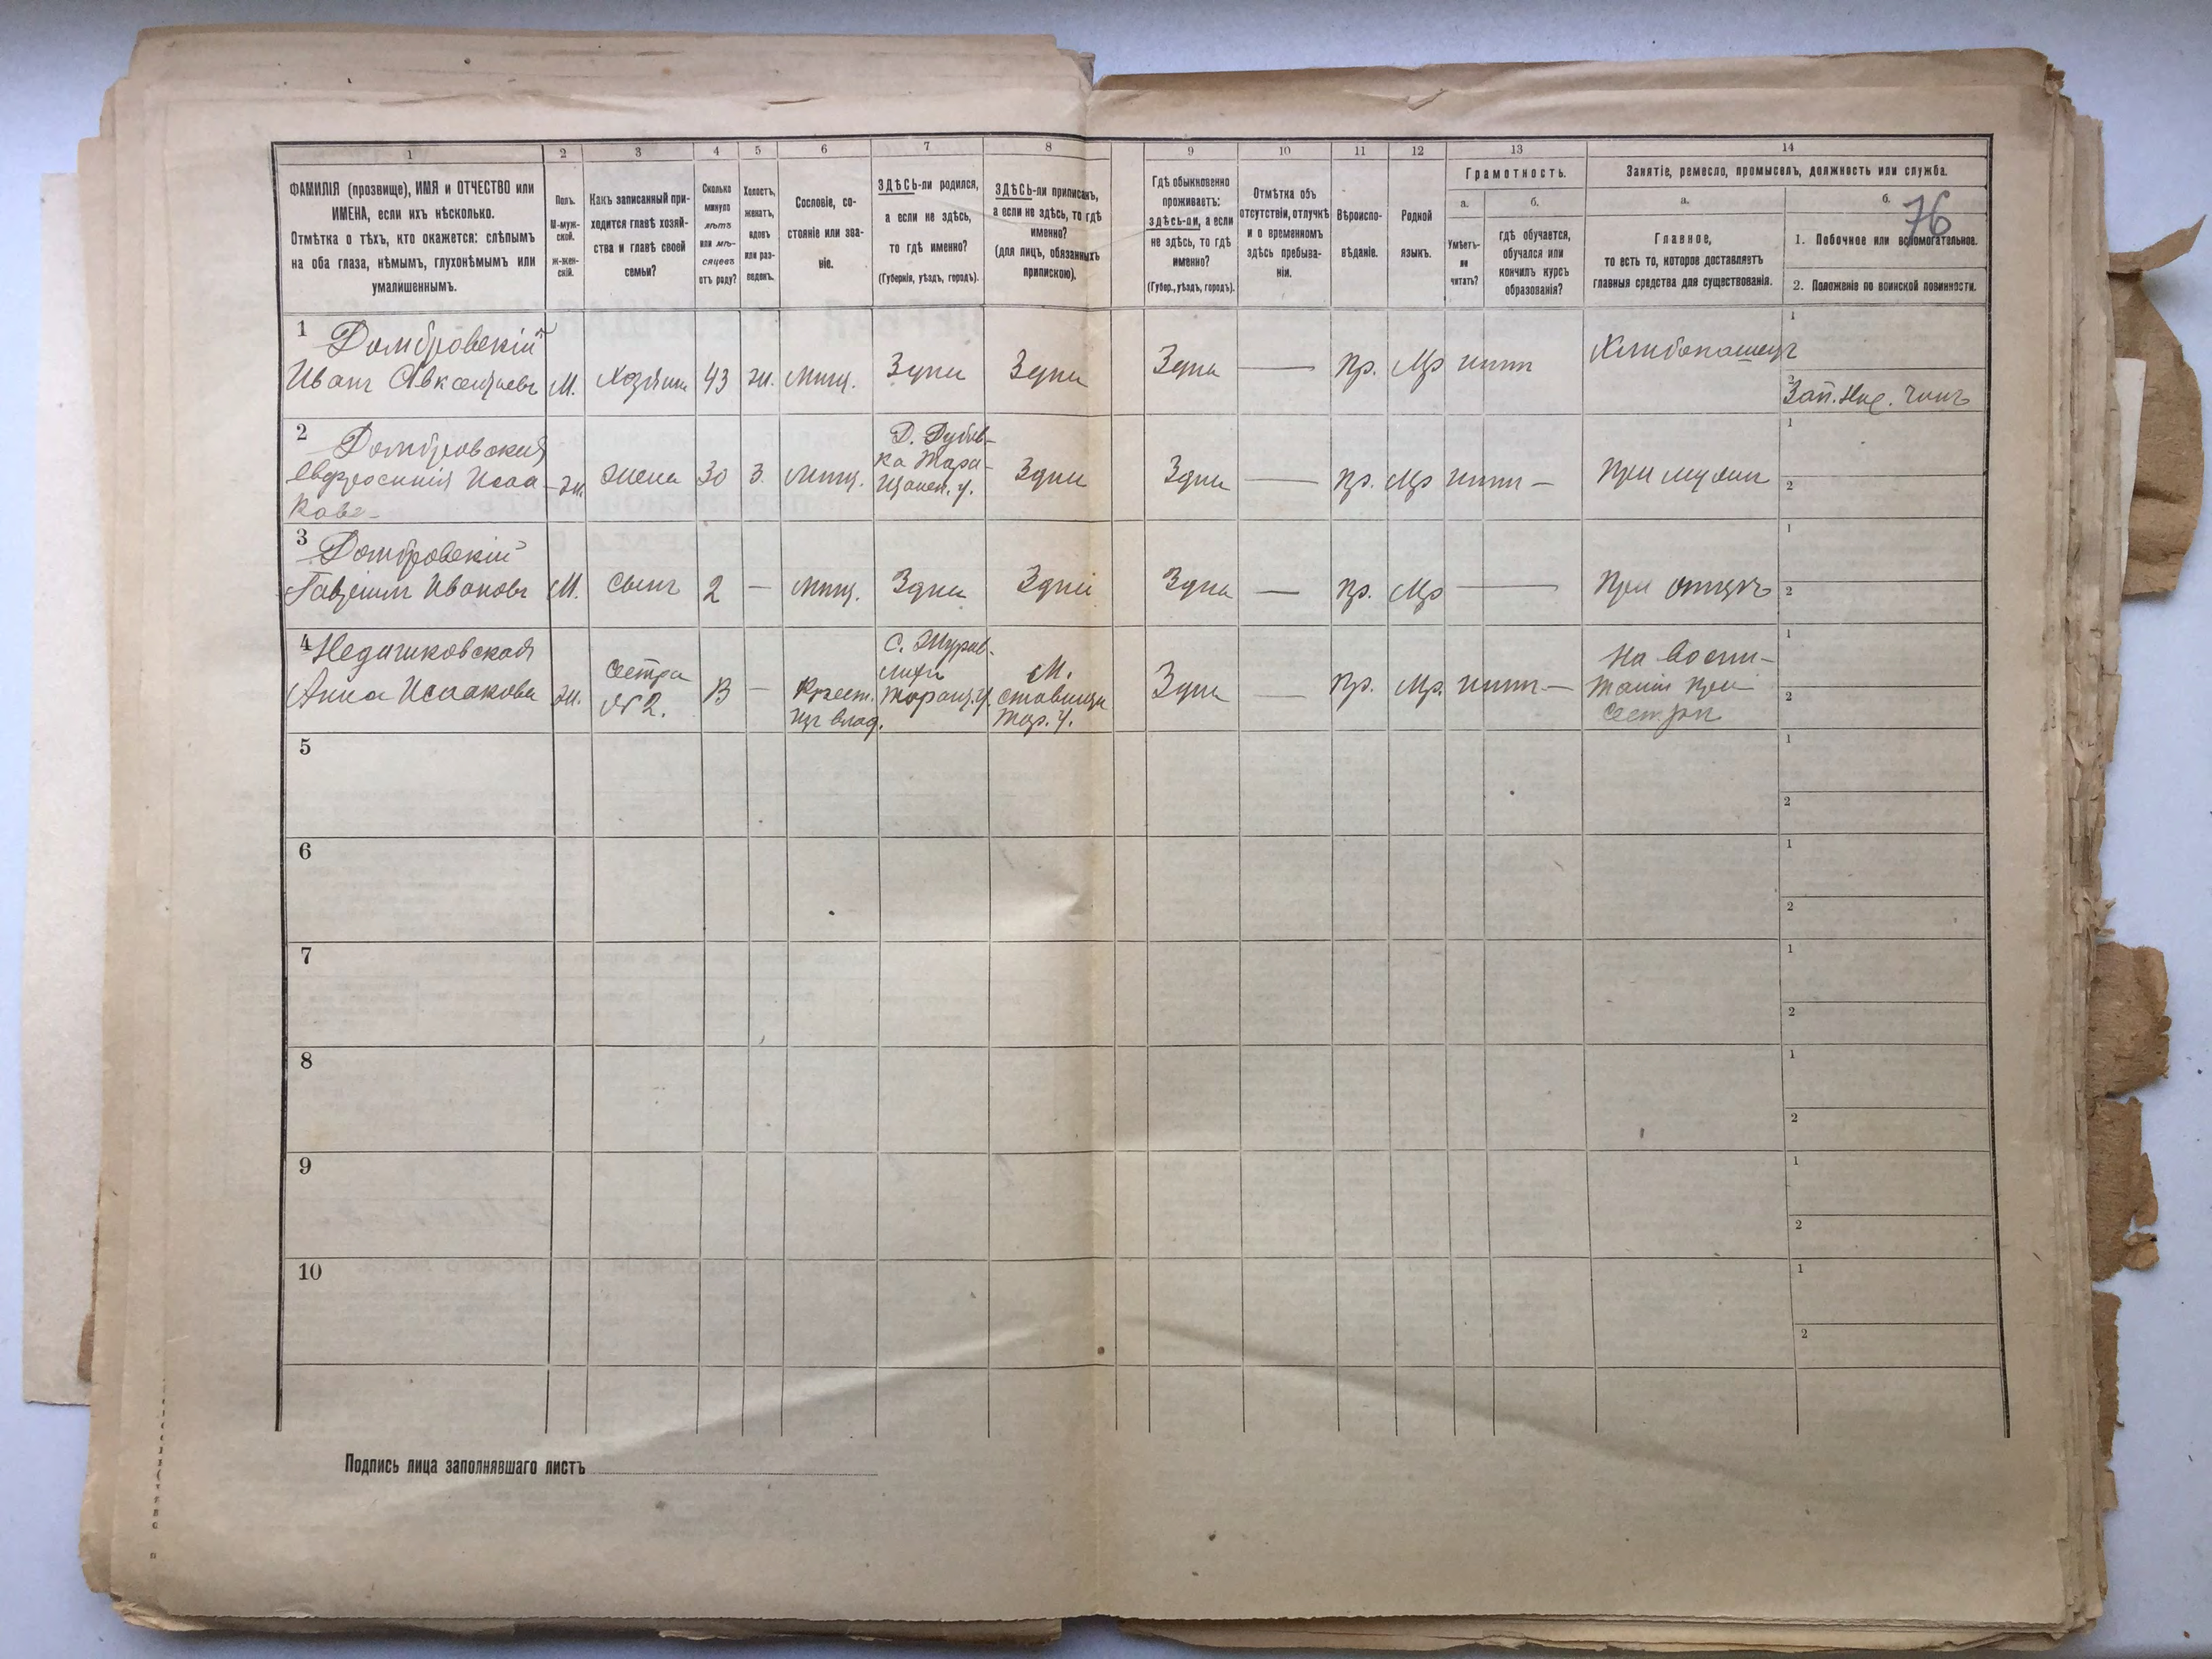 1
2
3
4
5
6
7
8
9
10
11
12
13
14
ФАМИЛІЯ (прозвище), ИМЯ и ОТЧЕСТВО или
ИМЕНА, если ихъ нѣсколько.
Отмѣтка о тѣхъ, кто окажется: слѣпымъ
на оба глаза, нѣмымъ, глухонѣмымъ или
умалишеннымъ.
Полъ.
М-муж-
ской.
Ж-жен-
скій.
Какъ записанный при-
ходится главѣ хозяй-
ства и главѣ своей
семьи?
Сколько
минуло
лѣтъ
или мѣ-
сяцевъ
отъ роду?
Холостъ,
женатъ,
вдовъ
или раз-
веденъ.
Сословіе, со-
стояніе или зва-
ніе.
ЗДѢСЬ-ли родился,
а если не здѣсь,
то гдѣ именно?
(Губернія, уѣздъ, городъ).
ЗДѢСЬ-ли приписанъ,
а если не здѣсь, то гдѣ
именно?
(для лицъ, обязанныхъ
припискою).
Гдѣ обыкновенно
проживаетъ:
здѣсь-ли, а если
не здѣсь, то гдѣ
именно?
(Губер., уѣздъ, городъ).
Отмѣтка объ
отсутствіи, отлучкѣ
и о временномъ
здѣсь пребыва-
ніи.
Вѣроиспо-
вѣданіе.
Родной
языкъ.
Грамотность.
а.
Умѣетъ-
ли
читать?
б.
гдѣ обучается,
обучался или
кончилъ курсъ
образованія?
Занятіе, ремесло, промыселъ, должность или служба.
а.
Главное,
то есть то, которое доставляетъ
главныя средства для существованія.
б.
76
1. Побочное или вспомогательное.
2. Положеніе по воинской повинности.
1
Домбровскій
Иванъ Авксентіевъ
М.
Хозяинъ
43
ж.
Мѣщ.
Здѣсь
Здѣсь
Здѣсь
—
Пр.
Мр
нѣтъ
Хлѣбопашецъ
1
2
Зап. Ниж. Чинъ
2
Домбровская
Евфросинія Исаа-
кова
ж.
Жена
30
З.
Мѣщ.
Д. Дубив-
ка Тара-
щанск. у.
Здѣсь
Здѣсь
—
Пр.
Мр
нѣтъ —
При мужѣ
1
2
3
Домбровскій
Гавріилъ Ивановъ
М.
Сынъ
2
—
Мѣщ.
Здѣсь
Здѣсь
Здѣсь
—
Пр.
Мр
—
При отцѣ
1
2
4
Недашковская
Анна Исаакова
ж.
Сестра
№ 2.
13
—
Крест.
изъ влад.
С. Журав-
лиха
Таращ. у.
М.
Ставище
Тар. у.
Здѣсь
—
Пр.
Мр.
нѣтъ —
На воспи-
таніи при
сестрѣ
1
2
5
1
2
6
1
2
7
1
2
8
1
2
9
1
2
10
1
2
Подпись лица заполнявшаго листъ